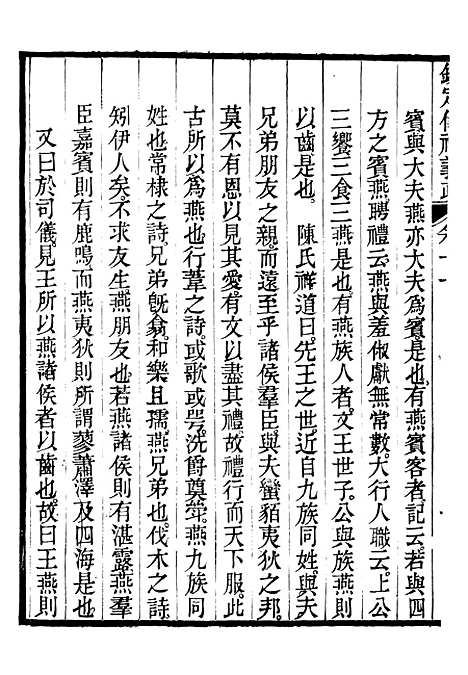 欽定儀禮義疏 卷十一
賓與大夫燕亦大夫為賓是也。有燕賓客者。記云。若與四
方之賓燕。聘禮云。燕與羞俶獻無常數。大行人職云。上公
三饗三食三燕是也。有燕族人者。文王世子。公與族燕則
以齒是也。 陳氏祥道曰。先王之世。近自九族同姓。與夫
兄弟朋友之親。而遠至乎諸侯羣臣。與夫蠻貊夷狄之邦。
莫不有恩以見其愛。有文以盡其禮。故禮行而天下服。此
古所以為燕也。行葦之詩。或歌或咢。洗爵奠斝。燕九族同
姓也。常棣之詩。兄弟既翕。和樂且孺。燕兄弟也。伐木之詩。
矧伊人矣。不求友生。燕朋友也。若燕諸侯則有湛露。燕羣
臣嘉賓則有鹿鳴。而燕夷狄則所謂蓼蕭澤及四海是也
又曰。於司儀。見王所以燕諸侯者以齒也。故曰王燕則